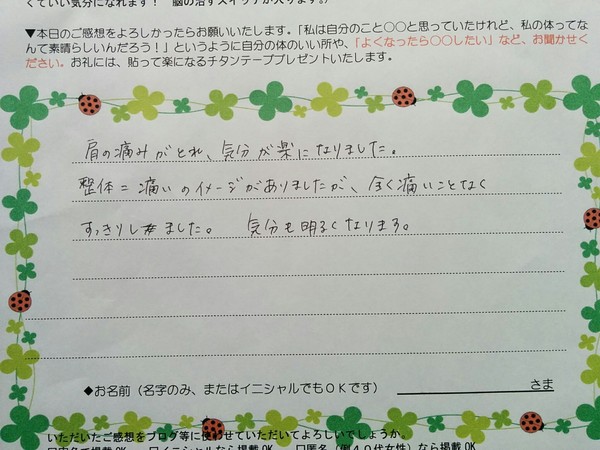 くていい気分になれます！　脳の治すスイッチが入ります。♪
▼本日のご感想をよろしかったらお願いいたします。「私は自分のこと〇〇と思っていたけれど、私の体ってな
んて素晴らしいんだろう！」というように自分の体のいい所や、「よくなったら〇〇したい」など、お聞かせく
ださい。お礼には、貼って楽になるチタンテーププレゼントいたします。
肩の痛みがとれ、気分が楽になりました。
整体＝痛いのイメージがありましたが、全く痛いことなく
すっきりしました。　気分も明るくなります。
◆お名前（名字のみ、またはイニシャルでもＯＫです）　　　　　さま
いただいたご感想をブログ等に使わせていただいてよろしいでしょうか。
□実名で掲載OK　　□イニシャルなら掲載OK　　□匿名（例４０代女性）なら掲載OK